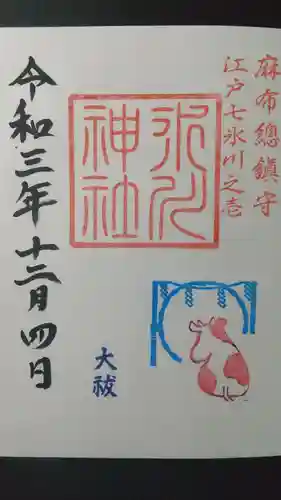 麻布總鎮守
江戸七氷川之壱
氷川神社
大祓
令和三年十二月四日